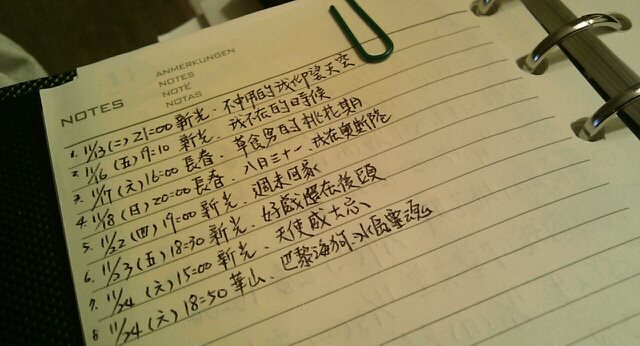 NOTES
ANMERKUNGEN
NOTES
NOTE
NOTAS
1. 11/13 (二) 21:00 新光、不中用的我仰望天空
2. 11/16 (五) 17:10 新光、我不在的時候
3. 11/17 (六) 16:00 長春、草食男的桃花期
4. 11/18 (日) 20:00 長春、八月三十一、我在奧斯陸
5. 11/22 (四) 19:00 新光、週末回家
6. 11/23 (五) 18:30 新光、好戲還在後頭
7. 11/24 (六) 15:00 新光、天使威士忌
8. 11/24 (六) 18:50 華山、巴黎海